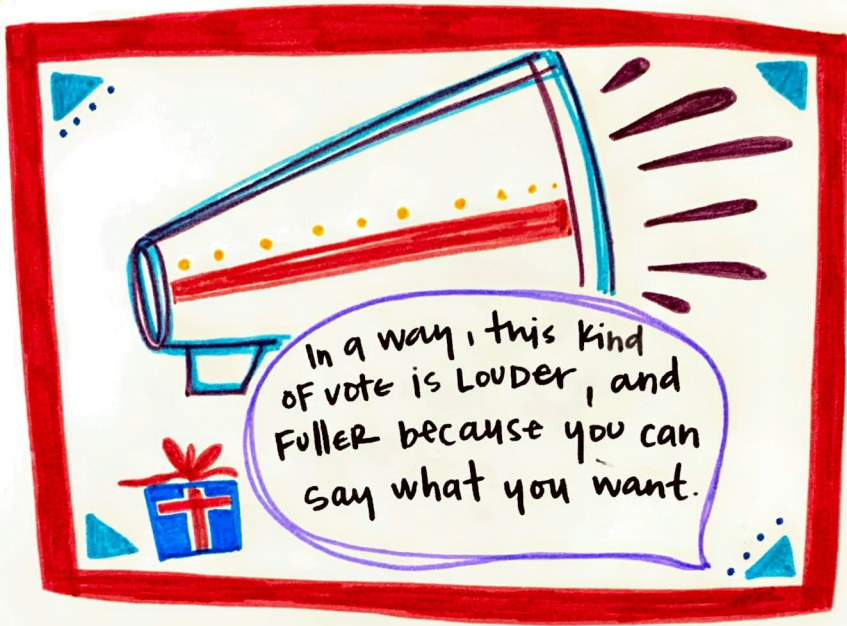 In a way, this kind
OF vote is LOUDer, and
FullER because you can
say what you want.